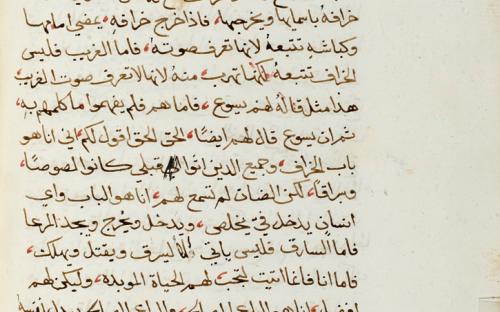 خرافه باسمايها ويخرجها، فاذا خرج خرافه، يمضي امامها
وكباشه تتبعه لانها تعرف صوته، فاما الغريب فليس
الخراف تتبعه لكنها تهرب منه لانها لا تعرف صوت الغريب
هذا مثل قاله لهم يسوع، فاما هم فلم يفهموا ما كلمهم به،
ثم ان يسوع قال لهم ايضًا، الحق الحق اقول لكم، اني انا هو
باب الخراف، وجميع الدين اتوا قبلي كانوا لصوصًا،
وسراقًا، لكن الضان لم تسمع لهم، انا هو الباب واي
انسان يدخل في يخلص، ويدخل ويخرج ويجد المرعا
فاما السارق فليس ياتي الا ليسرق ويقتل ويهلك،
فاما انا فانما اتيت لتجب لهم الحياة الموبده، وليكن لهم
افضل، انا هو الراعي الصالح، والراعي الصالح يبدل نفسه